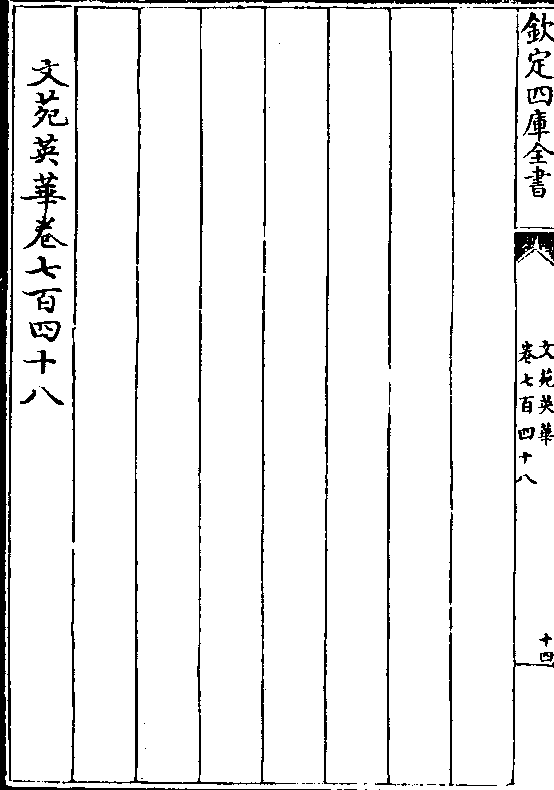 欽定四庫全書
文苑英華
卷七百四十八
十四
文苑英華卷七百四十八